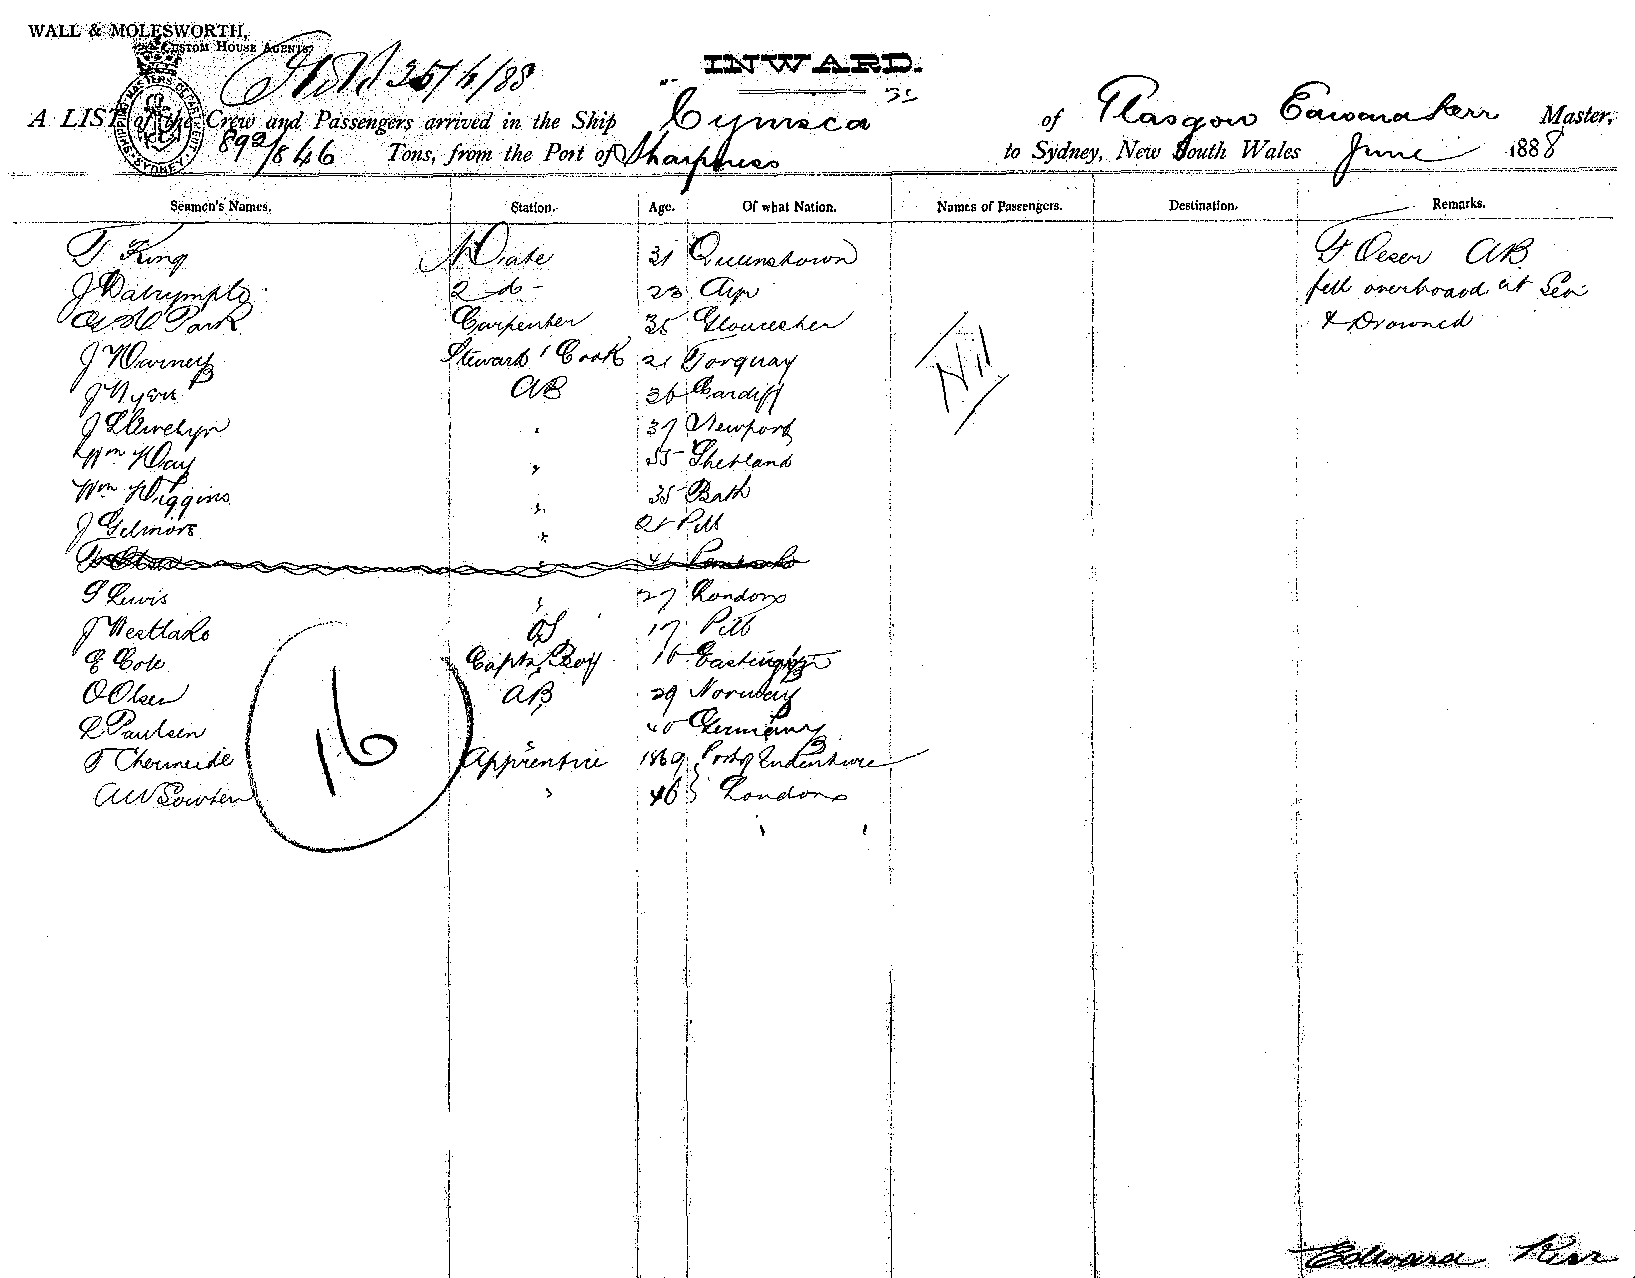 WALL & MOLESWORTH,
CUSTOM HOUSE AGENTS.
25/6/88
INWARD.
A LIST of the Crew and Passengers arrived in the Ship "Cymsca" of Glasgow Edward Kerr Master,
892/846 Tons, from the Port of Sharpness to Sydney, New South Wales June 1888
Seamen's Names. Station. Age. Of what Nation. Names of Passengers. Destination. Remarks.
T King Mate 31 Queenstown F Olsen AB
J Dalrymple 2 do - 23 Ayr fell overboard at Sea
Park Carpenter 35 Gloucester & Drowned
J Warney Steward & Cook 21 Torquay Nil
J Nyen AB 36 Cardiff
J Llewelyn " 37 Newport
Wm Day " 55 Shetland
Wm Wiggins " 35 Bath
J Gilmore " 21 Pill
G Lewis " 27 London
J Westlake OS 17 Pill
E Cole Capts Boy 16 Eastington
O Olsen AB 29 Norway
L Paulsen " 40 Germany
F Chermside Apprentice 1869 Port of Indenture
A W Sowter " 46 London
16
Edward Kerr